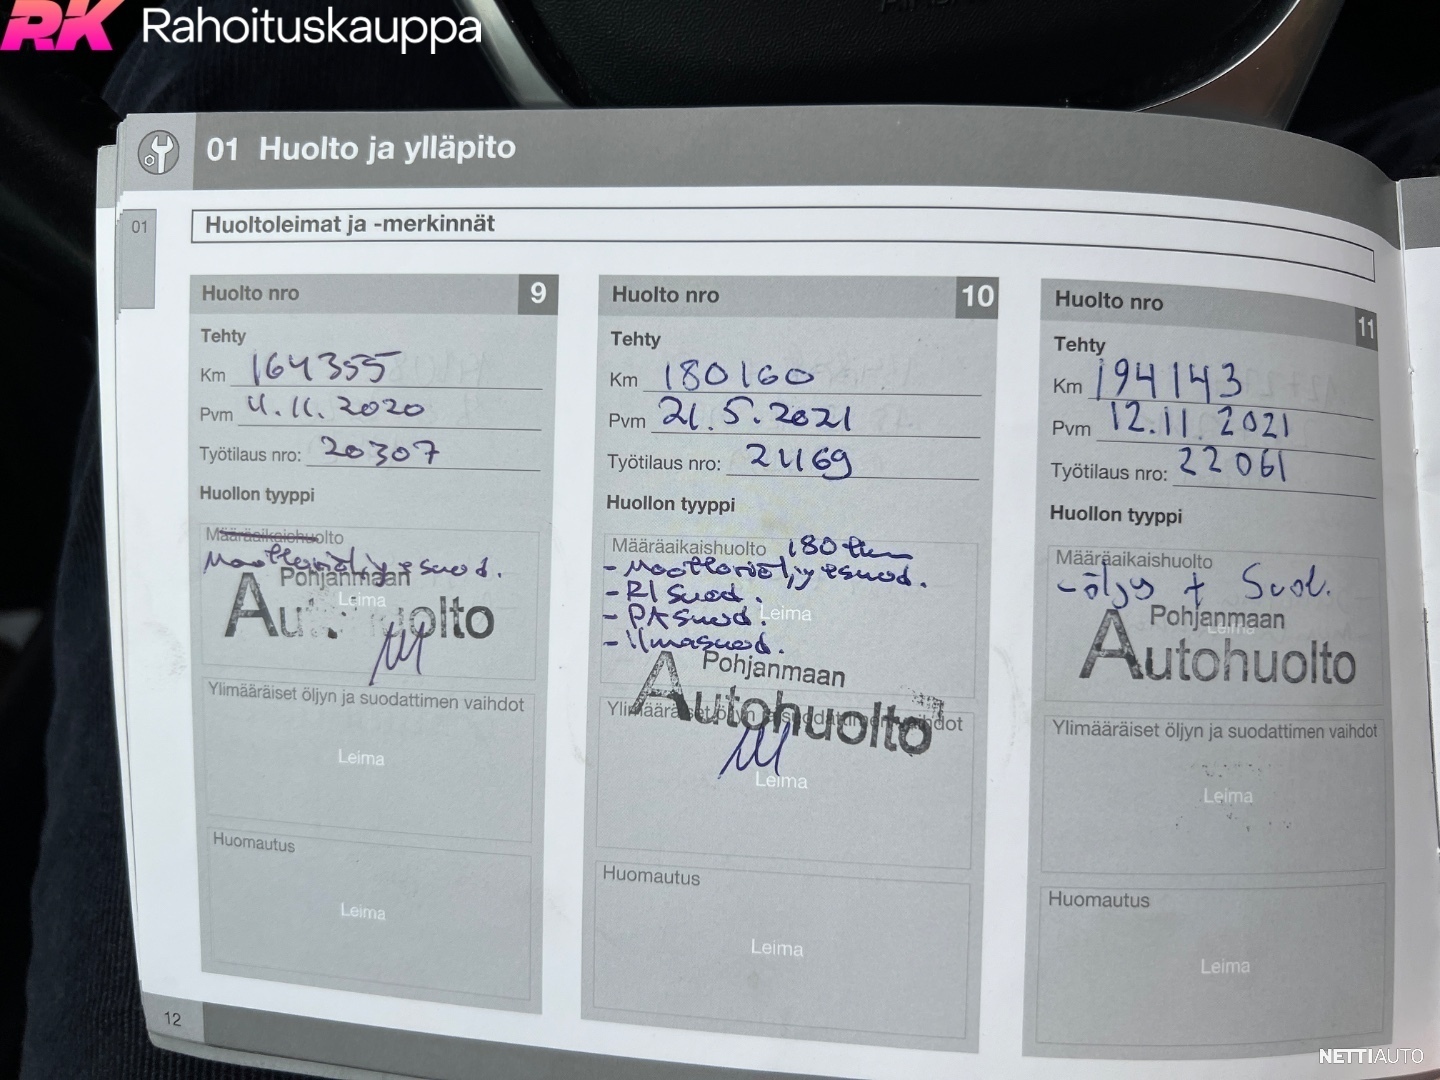 RK Rahoituskauppa
01 Huolto ja ylläpito
01
Huoltoleimat ja -merkinnät
Huolto nro 9
Tehty
Km 164355
Pvm 4.11.2020
Työtilaus nro: 20307
Huollon tyyppi
Määräaikaishuolto
Moottoriöljy + suod.
Pohjanmaan
Leima
Autohuolto
Ylimääräiset öljyn ja suodattimen vaihdot
Leima
Huomautus
Leima
Huolto nro 10
Tehty
Km 180160
Pvm 21.5.2021
Työtilaus nro: 21169
Huollon tyyppi
Määräaikaishuolto 180 tkm
- Moottoriöljy + suod.
- RI suod.
- PA suod.
Leima
- Ilmasuod.
Pohjanmaan
Autohuolto
Ylimääräiset öljyn ja suodattimen vaihdot
Leima
Huomautus
Leima
Huolto nro 11
Tehty
Km 194143
Pvm 12.11.2021
Työtilaus nro: 22061
Huollon tyyppi
Määräaikaishuolto
- öljy + Suod.
Pohjanmaan
Leima
Autohuolto
Ylimääräiset öljyn ja suodattimen vaihdot
Leima
Huomautus
Leima
12
NETTIAUTO